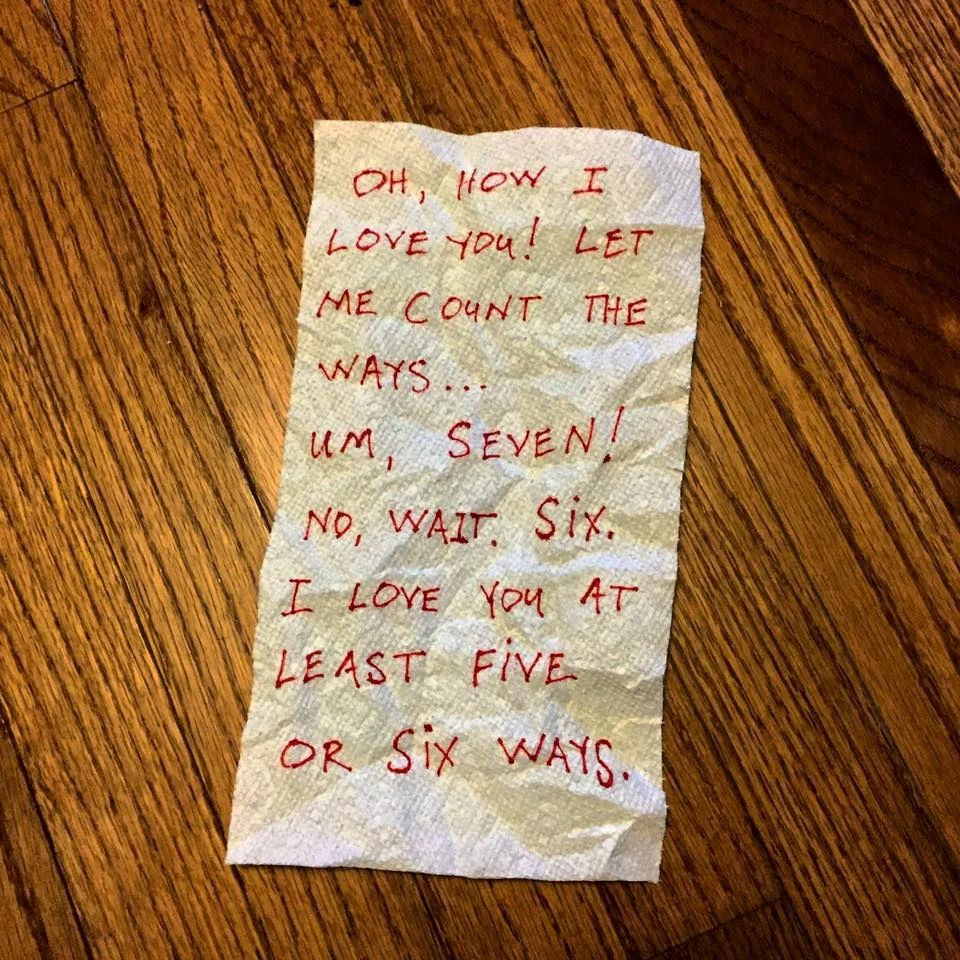 OH, HOW I
LOVE YOU! LET
ME COUNT THE
WAYS...
UM, SEVEN!
NO, WAIT. SIX.
I LOVE YOU AT
LEAST FIVE
OR SIX WAYS.